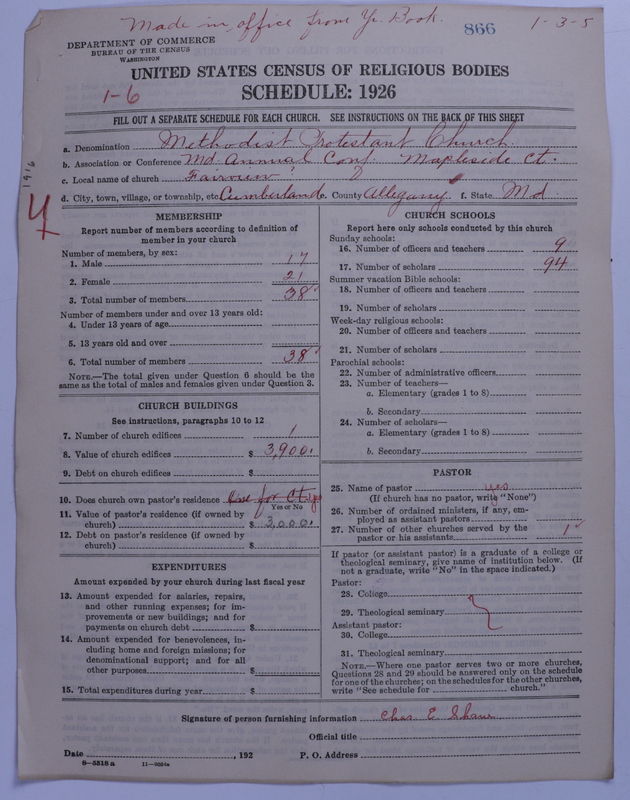 Made in office from Yr. Book.
866
1-3-5
DEPARTMENT OF COMMERCE
BUREAU OF THE CENSUS
WASHINGTON
UNITED STATES CENSUS OF RELIGIOUS BODIES
1-6
SCHEDULE: 1926
FILL OUT A SEPARATE SCHEDULE FOR EACH CHURCH. SEE INSTRUCTIONS ON THE BACK OF THIS SHEET
a. Denomination Methodist Protestant Church
b. Association or Conference Md. Annual Conf. Mapleside Ct.
c. Local name of church Fairview
d. City, town, village, or township, etc. Cumberland e. County Allegany f. State Md
1916
4
MEMBERSHIP
Report number of members according to definition of
member in your church
Number of members, by sex:
1. Male 17
2. Female 21
3. Total number of members 38
Number of members under and over 13 years old:
4. Under 13 years of age
5. 13 years old and over
6. Total number of members 38
NOTE.—The total given under Question 6 should be the
same as the total of males and females given under Question 3.
CHURCH BUILDINGS
See instructions, paragraphs 10 to 12
7. Number of church edifices 1
8. Value of church edifices $ 3,900.
9. Debt on church edifices $
10. Does church own pastor's residence One for Ct. yes
Yes or No
11. Value of pastor's residence (if owned by
church) $ 3,000.
12. Debt on pastor's residence (if owned by
church) $
EXPENDITURES
Amount expended by your church during last fiscal year
13. Amount expended for salaries, repairs,
and other running expenses; for im-
provements or new buildings; and for
payments on church debt $
14. Amount expended for benevolences, in-
cluding home and foreign missions; for
denominational support; and for all
other purposes $
15. Total expenditures during year $
CHURCH SCHOOLS
Report here only schools conducted by this church
Sunday schools:
16. Number of officers and teachers 9
17. Number of scholars 94
Summer vacation Bible schools:
18. Number of officers and teachers
19. Number of scholars
Week-day religious schools:
20. Number of officers and teachers
21. Number of scholars
Parochial schools:
22. Number of administrative officers
23. Number of teachers—
a. Elementary (grades 1 to 8)
b. Secondary
24. Number of scholars—
a. Elementary (grades 1 to 8)
b. Secondary
PASTOR
25. Name of pastor yes
(If church has no pastor, write "None")
26. Number of ordained ministers, if any, em-
ployed as assistant pastors
27. Number of other churches served by the
pastor or his assistants 1
If pastor (or assistant pastor) is a graduate of a college or
theological seminary, give name of institution below. (If
not a graduate, write "No" in the space indicated.)
Pastor:
28. College
29. Theological seminary
Assistant pastor:
30. College
31. Theological seminary
NOTE.—Where one pastor serves two or more churches,
Questions 28 and 29 should be answered only on the schedule
for one of the churches; on the schedules for the other churches,
write "See schedule for church."
Signature of person furnishing information Chas. E. Shaw
Official title
Date , 192 P. O. Address
8—5318 a 11—9554a